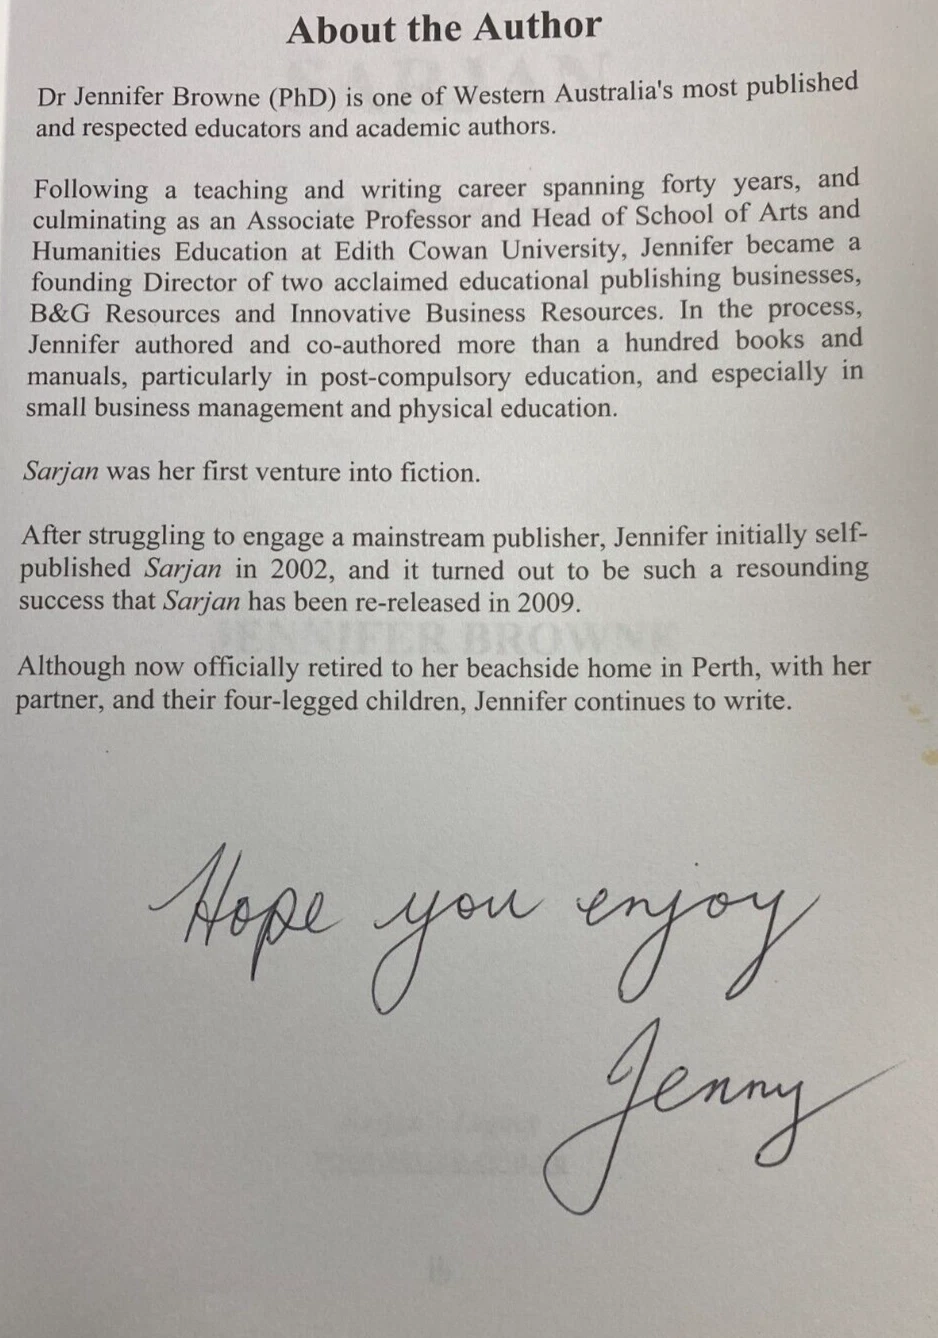 About the Author
Dr Jennifer Browne (PhD) is one of Western Australia's most published
and respected educators and academic authors.
Following a teaching and writing career spanning forty years, and
culminating as an Associate Professor and Head of School of Arts and
Humanities Education at Edith Cowan University, Jennifer became a
founding Director of two acclaimed educational publishing businesses,
B&G Resources and Innovative Business Resources. In the process,
Jennifer authored and co-authored more than a hundred books and
manuals, particularly in post-compulsory education, and especially in
small business management and physical education.
Sarjan was her first venture into fiction.
After struggling to engage a mainstream publisher, Jennifer initially self-
published Sarjan in 2002, and it turned out to be such a resounding
success that Sarjan has been re-released in 2009.
Although now officially retired to her beachside home in Perth, with her
partner, and their four-legged children, Jennifer continues to write.
Hope you enjoy
Jenny